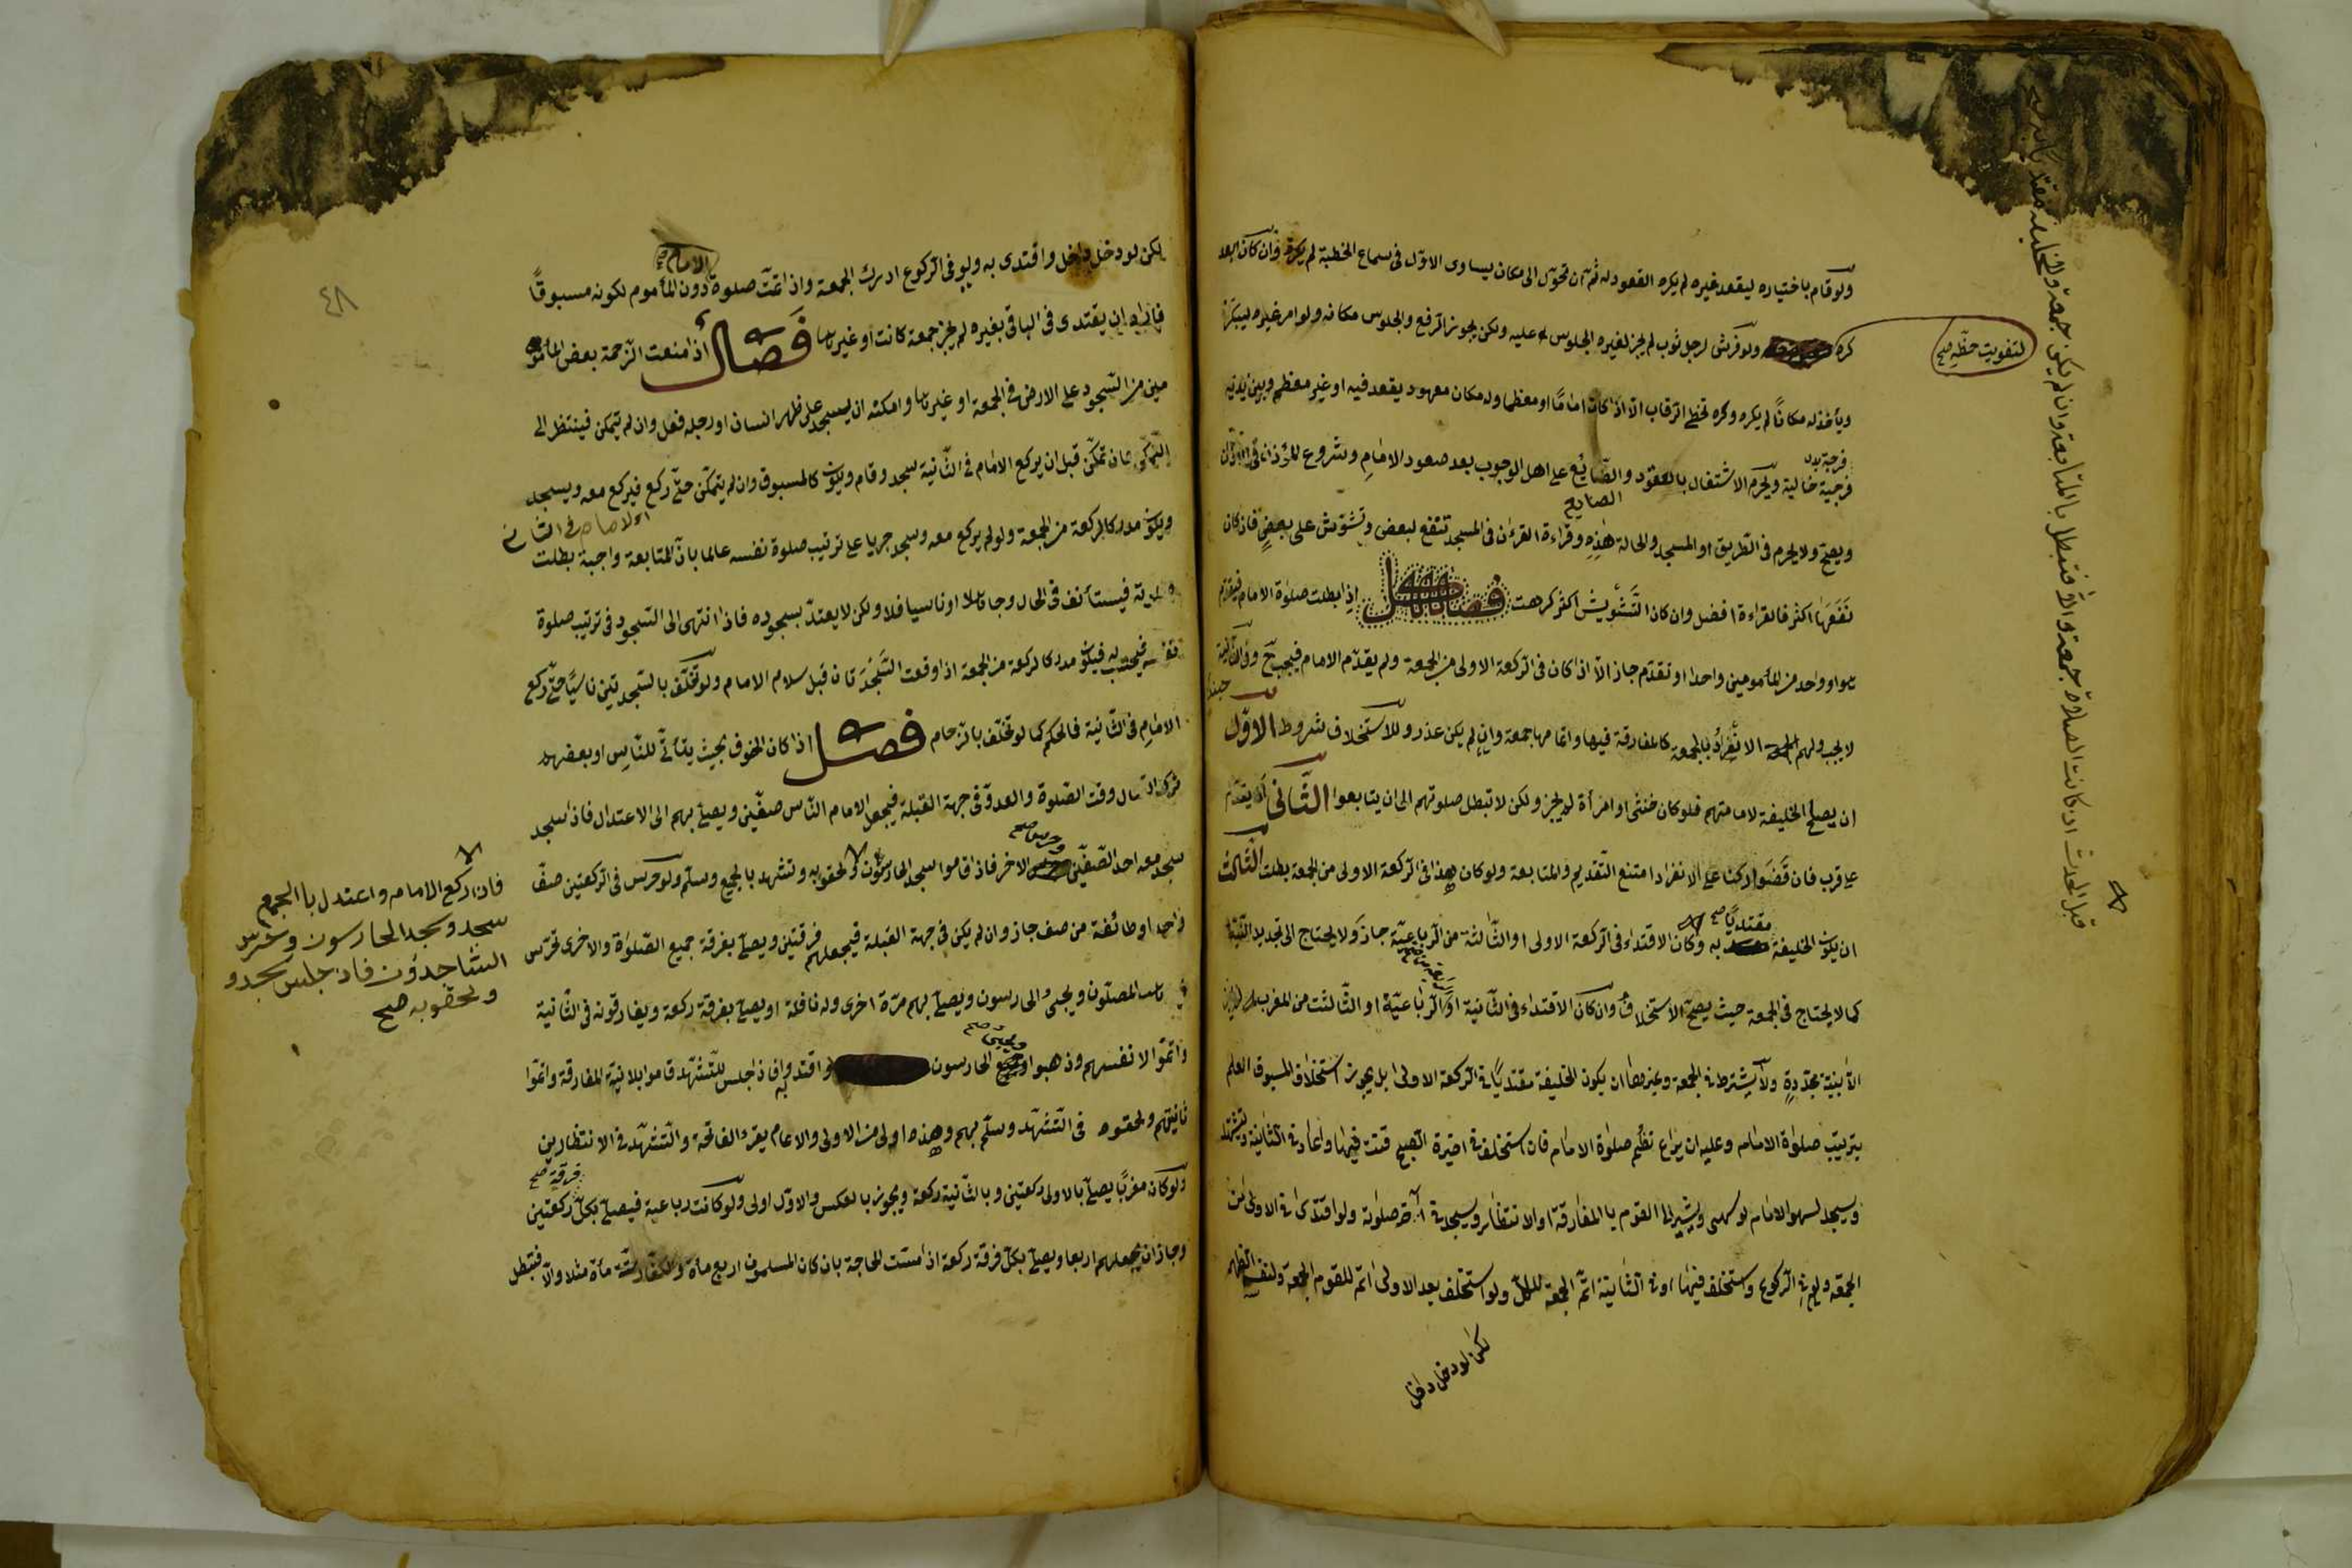 ولو قام باختياره ليقعد غيره لم يكره القعود له ثم ان تحول الى مكان يساوى الاول فى سماع الخطبة لم يكره وان كان ابعد
كره ولو فرش لرجل ثوب لم يجز لغيره الجلوس عليه ولكن يجوز الرفع والجلوس مكانه ولو امر غيره ليبكر
لتفويت حظه صح
ويأخذ له مكانًا لم يكره وكره تخطى الرقاب الا اذا كان امامًا او معظما وله مكان معهود يقعد فيه او غير معظم وبين يديه
فرجة خالية ويحرم الاشتغال بالعقود والصنائع على اهل الوجوب بعد صعود الامام وشروع المؤذن فى الاذان
ويصح ولا يحرم فى الطريق او المسجد والحالة هذه وقراءة القرءان فى المسجد تنفع لبعض وتشوش على بعض فان كان
نفعها اكثر فالقراءة افضل وان كان التشويش اكثر كرهت فصل اذا بطلت صلوة الامام فيقدم
هو او واحد من المأمومين واحدا او تقدم جاز الا اذا كان فى الركعة الاولى من الجمعة ولم يقدم الامام فيجب وفى الثانية
لا يجب ولهم الانفراد بالجمعة كالمفارقة فيها واتمامها جمعة وان لم يكن عذر وللاستخلاف شروط الاول
ان يصلح الخليفة لامامتهم فلو كان خنثى او امرأة لم يجز ولكن لا تبطل صلوتهم الى ان يتابعوا الثانى ان يقدم
على قرب فان قضوا ركنا على الانفراد امتنع التقديم والمتابعة ولو كان هذا فى الركعة الاولى من الجمعة بطلت الثالث
ان يكون الخليفة مقتديًا صح به وكان الاقتداء فى الركعة الاولى او الثالثة من الرباعية جاز ولا يحتاج الى تجديد النية
كما لا يحتاج فى الجمعة حيث يصح الاستخلاف وان كان الاقتداء فى الثانية او الرباعية او الثالثة من المغرب لم يجز
الا بنية مجددة ولا يشترط فى الجمعة وغيرها ان يكون الخليفة مقتديًا فى الركعة الاولى بل يجوز استخلاف المسبوق العالم
بترتيب صلوة الامام وعليه ان يراعى نظم صلوة الامام فان استخلف فى اخيرة الصبح قنت فيها واعاد فى الثانية ويتشهد
ويسجد لسهو الامام لو سهى ويشير الى القوم بالمفارقة او الانتظار ويسجد فى آخر صلوته ولو اقتدى فى الاولى من
الجمعة ولو فى الركوع واستخلف فيها او فى الثانية اتم الجمعة للكل ولو استخلف بعد الاولى اتم للقوم الجمعة ولنفسه الظهر
لكن لو دخل داخل
٤٨
لكن لو دخل داخل واقتدى به ولو فى الركوع ادرك الجمعة واذا تمت صلوة الامام دون المأموم لكونه مسبوقًا
فاراد ان يقتدى فى الباقى بغيره لم يجز جمعة كانت او غيرها فصل اذا منعت الزحمة بعض المأمو
مين من السجود على الارض فى الجمعة او غيرها وامكنه ان يسجد على ظهر انسان او رجله فعل وان لم يتمكن فينتظر الى
التمكن فان تمكن قبل ان يركع الامام فى الثانية سجد وقام ويكون كالمسبوق وان لم يتمكن حتى ركع فيركع معه ويسجد
ويكون مدركا لركعة من الجمعة ولو لم يركع معه وسجد جريا على ترتيب صلوة نفسه عالما بان المتابعة واجبة بطلت
فيستأنف فى الحال وجاهلا او ناسيا فلا ولكن لا يعتد بسجوده فاذا انتهى الى السجود فى ترتيب صلوة
نفسه فيحتسب له فيكون مدركا لركعة من الجمعة اذا وقعت السجدتان قبل سلام الامام ولو تخلف بالسجدتين ناسيًا حتى ركع
الامام فى الثانية فالحكم كما لو تخلف بالزحام فصل اذا كان الخوف بحيث يتأتى للناس او بعضهم
ترك القتال وقت الصلوة والعدو فى جهة القبلة فيجعل الامام الناس صفين ويصلى بهم الى الاعتدال فاذا سجد
سجد معه احد الصفين وحرس صح الاخر فاذا قاموا سجد الحارسون ولحقوا به وتشهد بالجميع وسلم ولو حرس فى الركعتين صف
واحد او طائفة من صف جاز وان لم يكن فى جهة القبلة فيجعلهم فرقتين ويصلى بفرقة جميع الصلوة والاخرى تحرس
المصلون ويجىء الحارسون ويصلى بهم مرة اخرى وله نافلة او يصلى بفرقة ركعة ويفارقونه فى الثانية
واتموا لانفسهم وذهبوا ويجىء صح الحارسون واقتدوا به فاذا جلس للتشهد قاموا بلا نية المفارقة واتموا
ثانيتهم ولحقوه فى التشهد وسلم بهم وهذه اولى من الاولى والامام يقرء الفاتحة والتشهد فى الانتظارين
ولو كان مغربًا يصلى بالاولى ركعتين وبالثانية ركعة ويجوز بالعكس والاول اولى ولو كانت رباعية فيصلى بكل فرقة صح ركعتين
وجاز ان يجعلهم اربعا ويصلى بكل فرقة ركعة اذا مست الحاجة بان كان المسلمون اربع مأة والكفار ستة مأة مثلا والا فتبطل
فان ركع الامام واعتدل با الجميع
سجد وسجد الحارسون وحرس
الساجدون فاذا جلس سجدو
ولحقو به صح